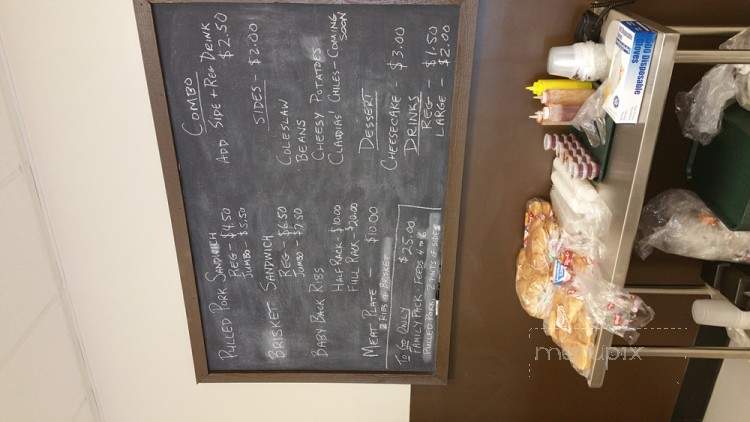 PULLED PORK SANDWICH
REG - $4.50
JUMBO - $5.50
BRISKET SANDWICH
REG - $6.50
JUMBO - $7.50
BABY BACK RIBS
HALF RACK - $10.00
FULL RACK - $20.00
MEAT PLATE - $10.00
2 RIBS & BRISKET
TO GO ONLY $25.00
FAMILY PACK - FEEDS 4 to 6
PULLED PORK, 2 PINTS of SIDES
COMBO
ADD SIDE + REG DRINK
$2.50
SIDES - $2.00
COLESLAW
BEANS
CHEESY POTATOES
CLAUDIAS' CHILES - COMING SOON
DESSERT
CHEESECAKE - $3.00
DRINKS
REG - $1.50
LARGE - $2.00
100 Disposable
Gloves
menupix